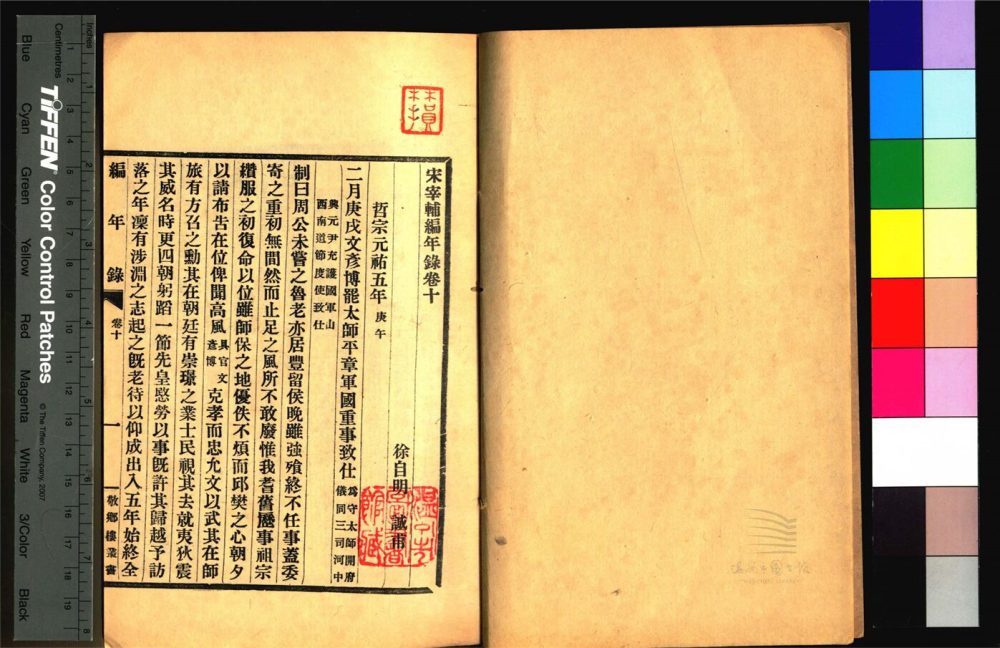 宋宰輔編年錄卷十
徐自明 誠甫
哲宗元祐五年庚午
二月庚戌文彥博罷太師平章軍國重事致仕為守太師開府儀同三司河中
興元尹充護國軍山西南道節度使致仕
制曰周公未嘗之魯老亦居豐留侯晚雖強飱終不任事蓋委
寄之重初無間然而止足之風所不敢廢惟我耆舊歷事祖宗
纘服之初復命以位雖師保之地優佚不煩而邱樊之心朝夕
以請布告在位俾聞高風具官文彥博克孝而忠允文以武其在師
旅有方召之勳其在朝廷有崇璟之業士民視其去就夷狄震
其威名時更四朝躬蹈一節先皇愍勞以事既許其歸越予訪
落之年凜有涉淵之志起之既老待以仰成出入五年始終全
編年錄 卷十 一 敬鄉樓叢書
Inches
Centimetres
TIFFEN Color Control Patches
© The Tiffen Company, 2007
Blue Cyan Green Yellow Red Magenta White 3/Color Black